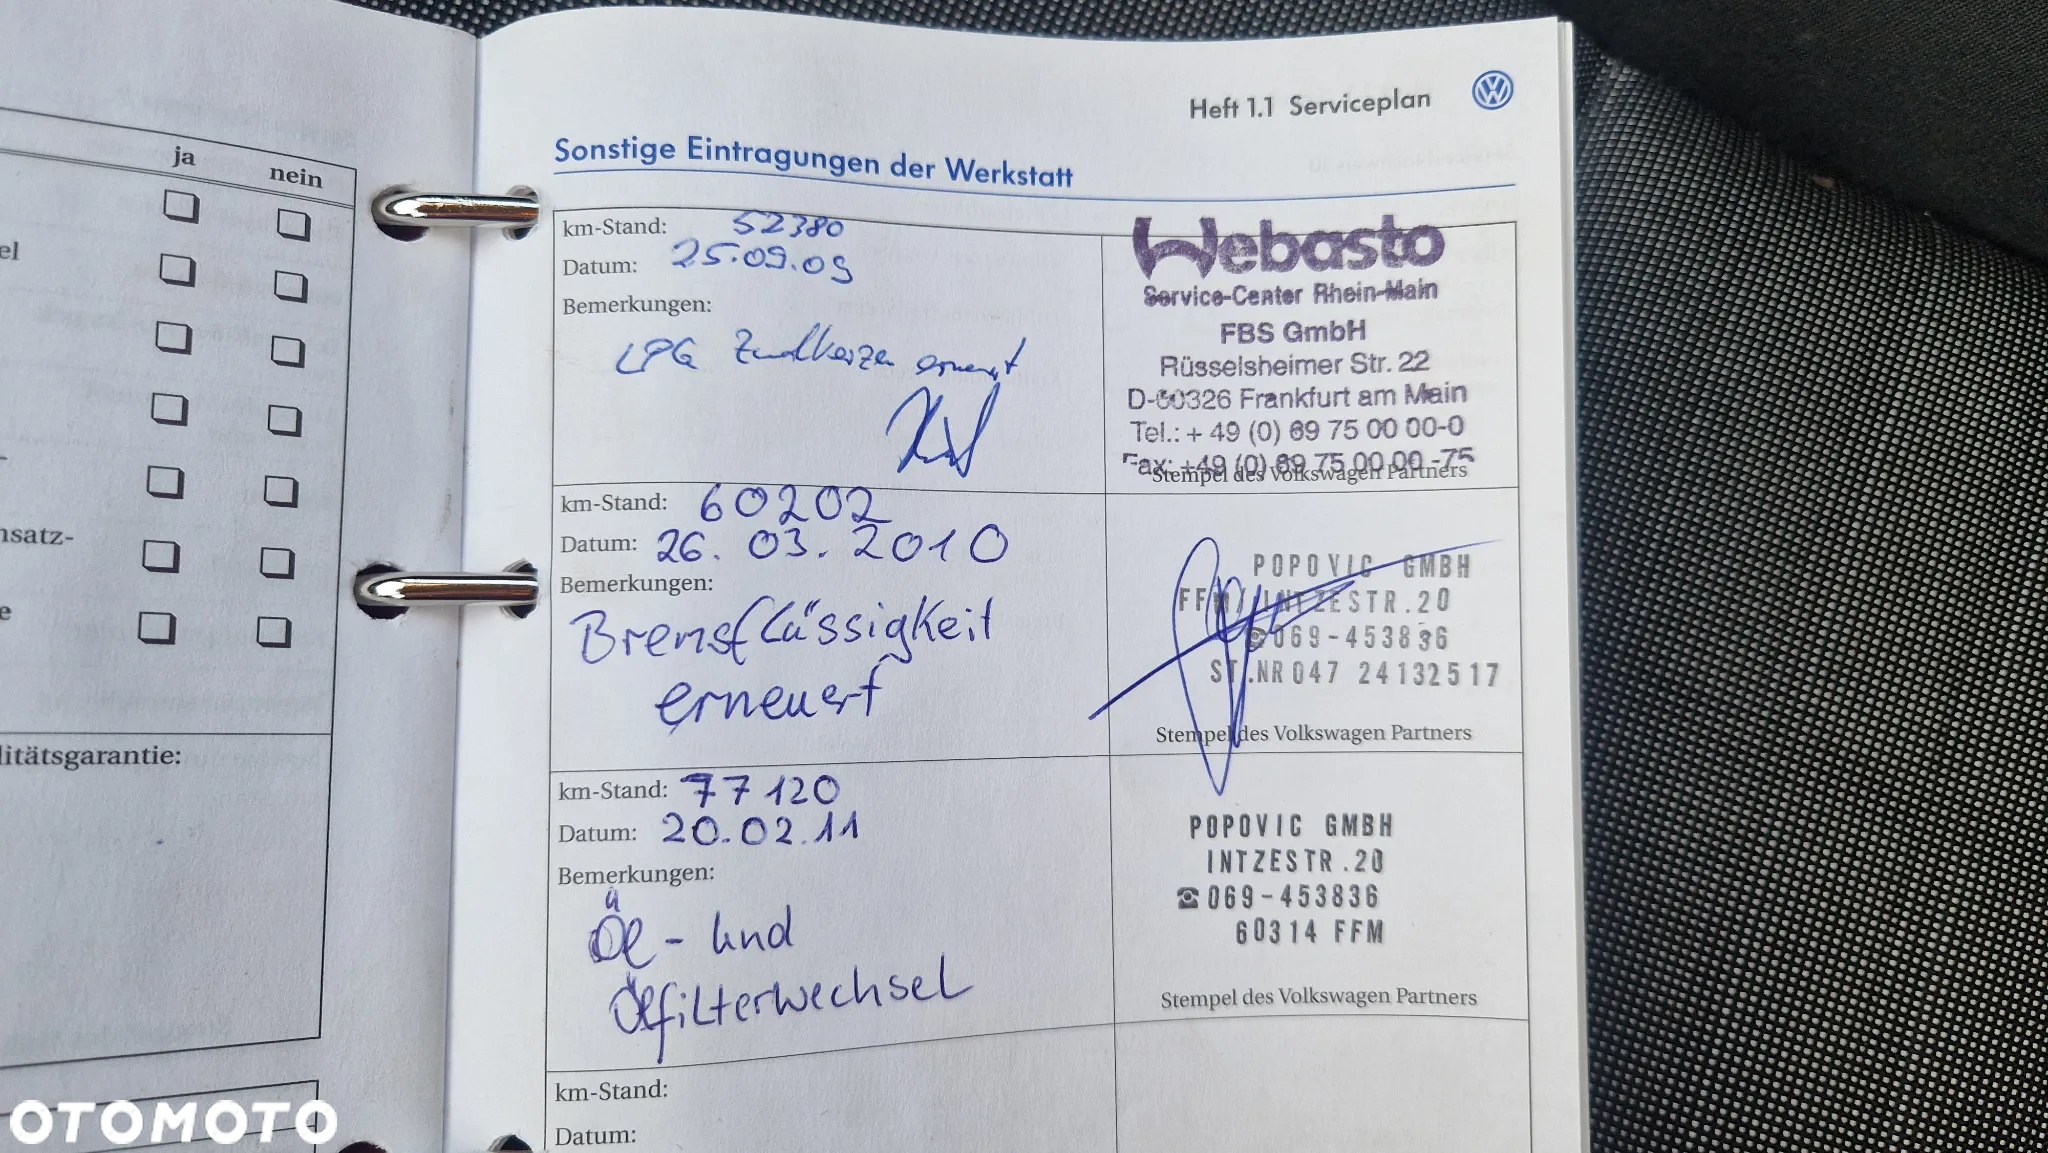 ja
nein
el
-
nsatz-
e
litätsgarantie:
Heft 1.1 Serviceplan
Sonstige Eintragungen der Werkstatt
km-Stand: 52380
Datum: 25.09.09
Bemerkungen:
LPG Zündkerzen erneuert
Webasto
Service-Center Rhein-Main
FBS GmbH
Rüsselsheimer Str. 22
D-60326 Frankfurt am Main
Tel.: + 49 (0) 69 75 00 00-0
Fax: +49 (0) 69 75 00 00 -75
Stempel des Volkswagen Partners
km-Stand: 60202
Datum: 26.03.2010
Bemerkungen:
Bremsflässigkeit
erneuert
POPOVIC GMBH
FFM/INTZESTR.20
☎069-453836
ST.NR047 24132517
Stempel des Volkswagen Partners
km-Stand: 77120
Datum: 20.02.11
Bemerkungen:
Öl- und
Ölfilterwechsel
POPOVIC GMBH
INTZESTR.20
☎069-453836
60314 FFM
Stempel des Volkswagen Partners
km-Stand:
Datum:
OTOMOTO